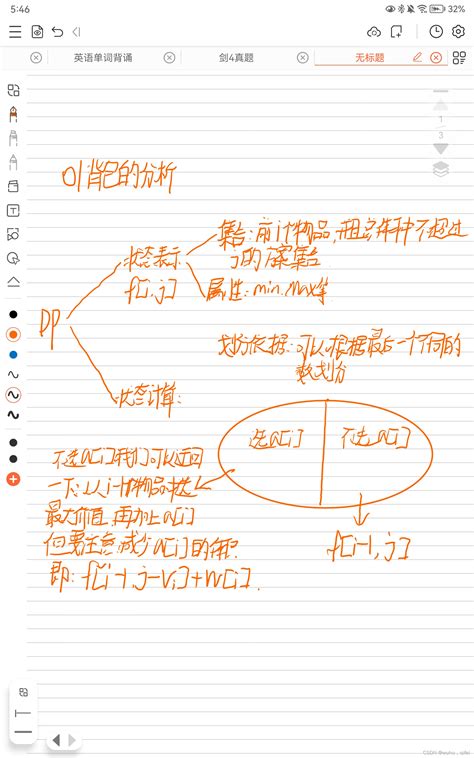 5:46
32%
英语单词背诵
剑4真题
无标题
1
3
01背包的分析
DP
状态表示
f[i,j]
集合:前i个物品,且总体积不超过
j的方案集合
属性:min.Max等
划分依据:可以根据最后一个不同的
数划分
状态计算:
选a[i]
不选a[i]
f[i-1,j]
不选a[i]我们可以迂回
一下:从i-1个物品中选
最大价值,再加上a[i]
但要注意减少a[i]的体积
即:f[i-1,j-vi]+w[i].